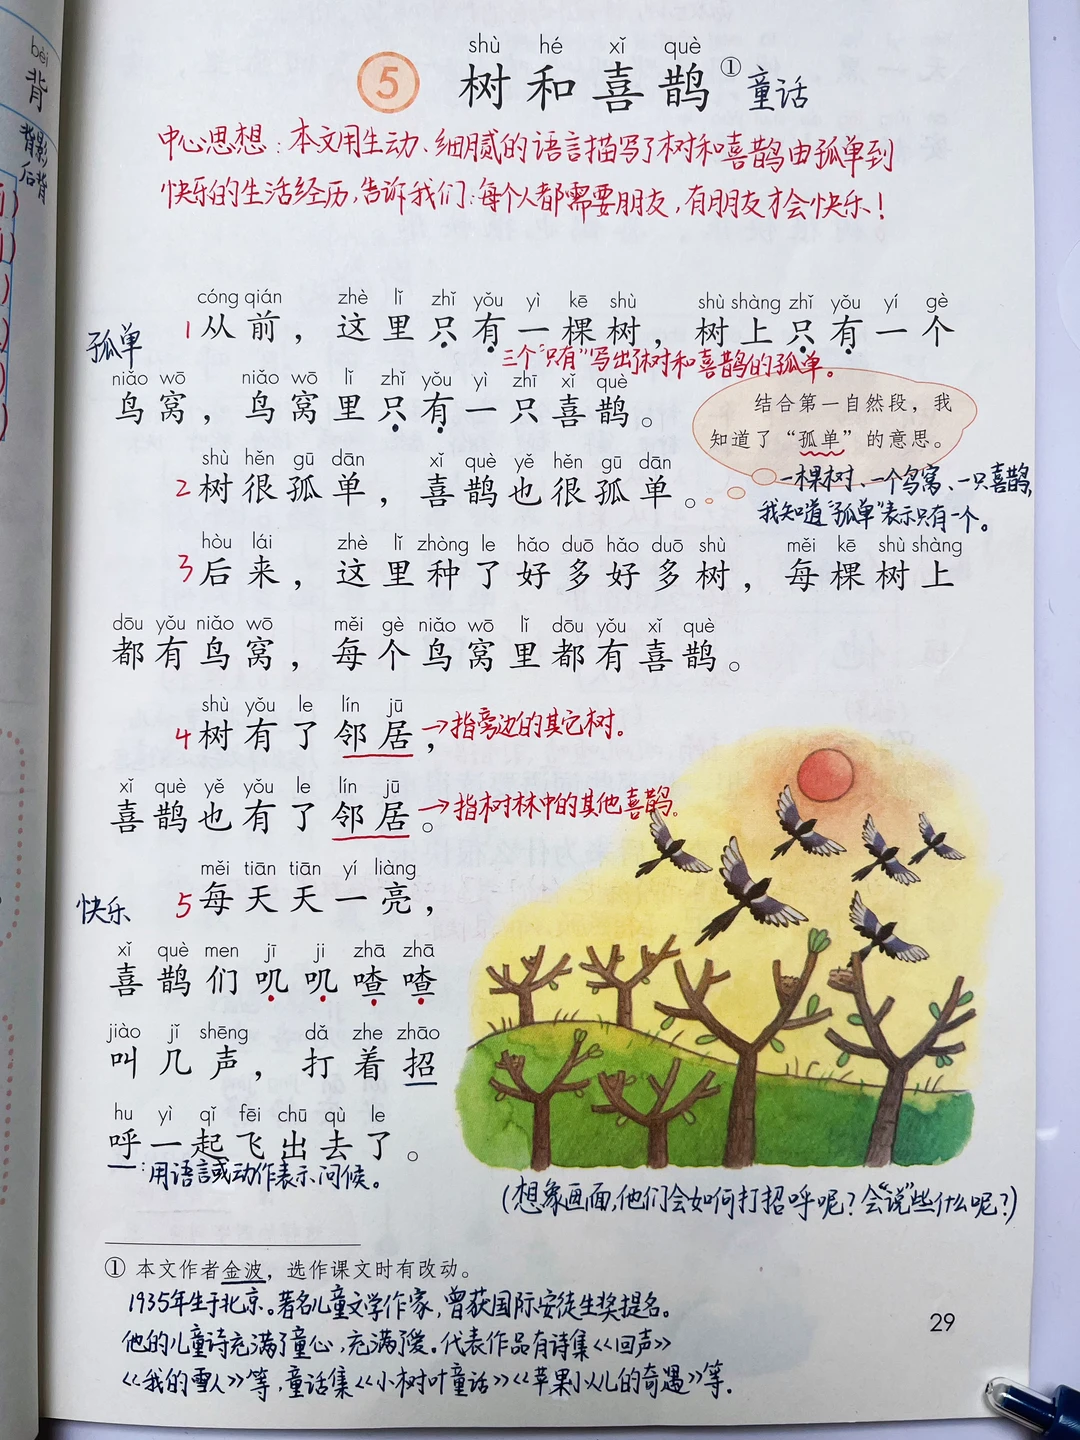 bèi
背
背影
后背
shù hé xǐ què
5 树和喜鹊① 童话
中心思想：本文用生动、细腻的语言描写了树和喜鹊由孤单到
快乐的生活经历，告诉我们：每个人都需要朋友，有朋友才会快乐！
cóng qián zhè lǐ zhǐ yǒu yì kē shù shù shàng zhǐ yǒu yí gè
孤单 1 从前，这里只有一棵树，树上只有一个
三个“只有”写出了树和喜鹊的孤单。
niǎo wō niǎo wō lǐ zhǐ yǒu yì zhī xǐ què
鸟窝，鸟窝里只有一只喜鹊。
结合第一自然段，我
知道了“孤单”的意思。
shù hěn gū dān xǐ què yě hěn gū dān
2 树很孤单，喜鹊也很孤单。
一棵树、一个鸟窝、一只喜鹊，
我知道“孤单”表示只有一个。
hòu lái zhè lǐ zhòng le hǎo duō hǎo duō shù měi kē shù shàng
3 后来，这里种了好多好多树，每棵树上
dōu yǒu niǎo wō měi gè niǎo wō lǐ dōu yǒu xǐ què
都有鸟窝，每个鸟窝里都有喜鹊。
shù yǒu le lín jū
4 树有了邻居，→指旁边的其它树。
xǐ què yě yǒu le lín jū
喜鹊也有了邻居。→指树林中的其他喜鹊。
měi tiān tiān yí liàng
快乐 5 每天天一亮，
xǐ què men jī ji zhā zhā
喜鹊们叽叽喳喳
jiào jǐ shēng dǎ zhe zhāo
叫几声，打着招
hu yì qǐ fēi chū qù le
呼一起飞出去了。
：用语言或动作表示问候。
（想象画面，他们会如何打招呼呢？会“说”些什么呢？）
① 本文作者金波，选作课文时有改动。
1935年生于北京。著名儿童文学作家，曾获国际安徒生奖提名。
他的儿童诗充满了童心，充满了爱。代表作品有诗集《回声》
《我的雪人》等，童话集《小树叶童话》《苹果小人儿的奇遇》等.
29